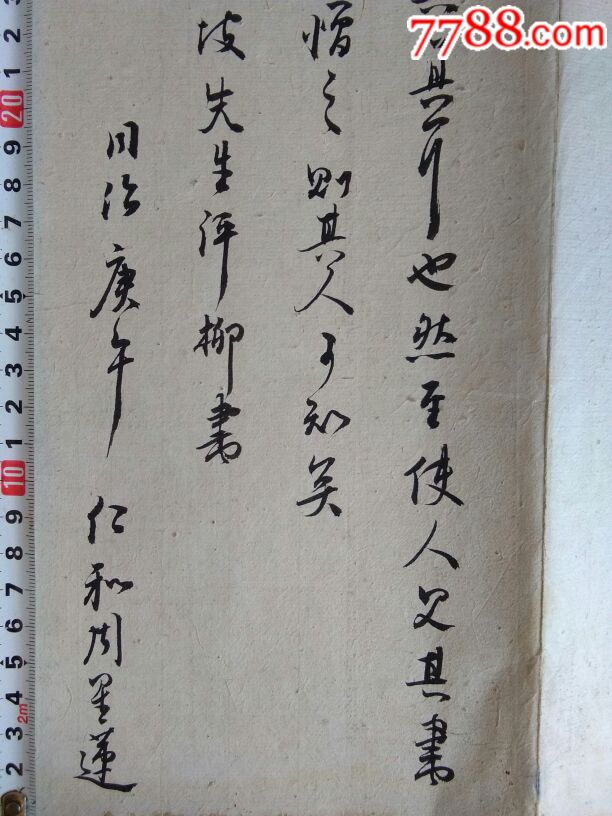 7788.com
真尔也然至使人見其書
憎之則其人可知矣
坡先生評柳書
同治庚午 仁和周星蓮
2 1 20 9 8 7 6 5 4 3 2 1 10 9 8 7 6 5 4 3 2m 2